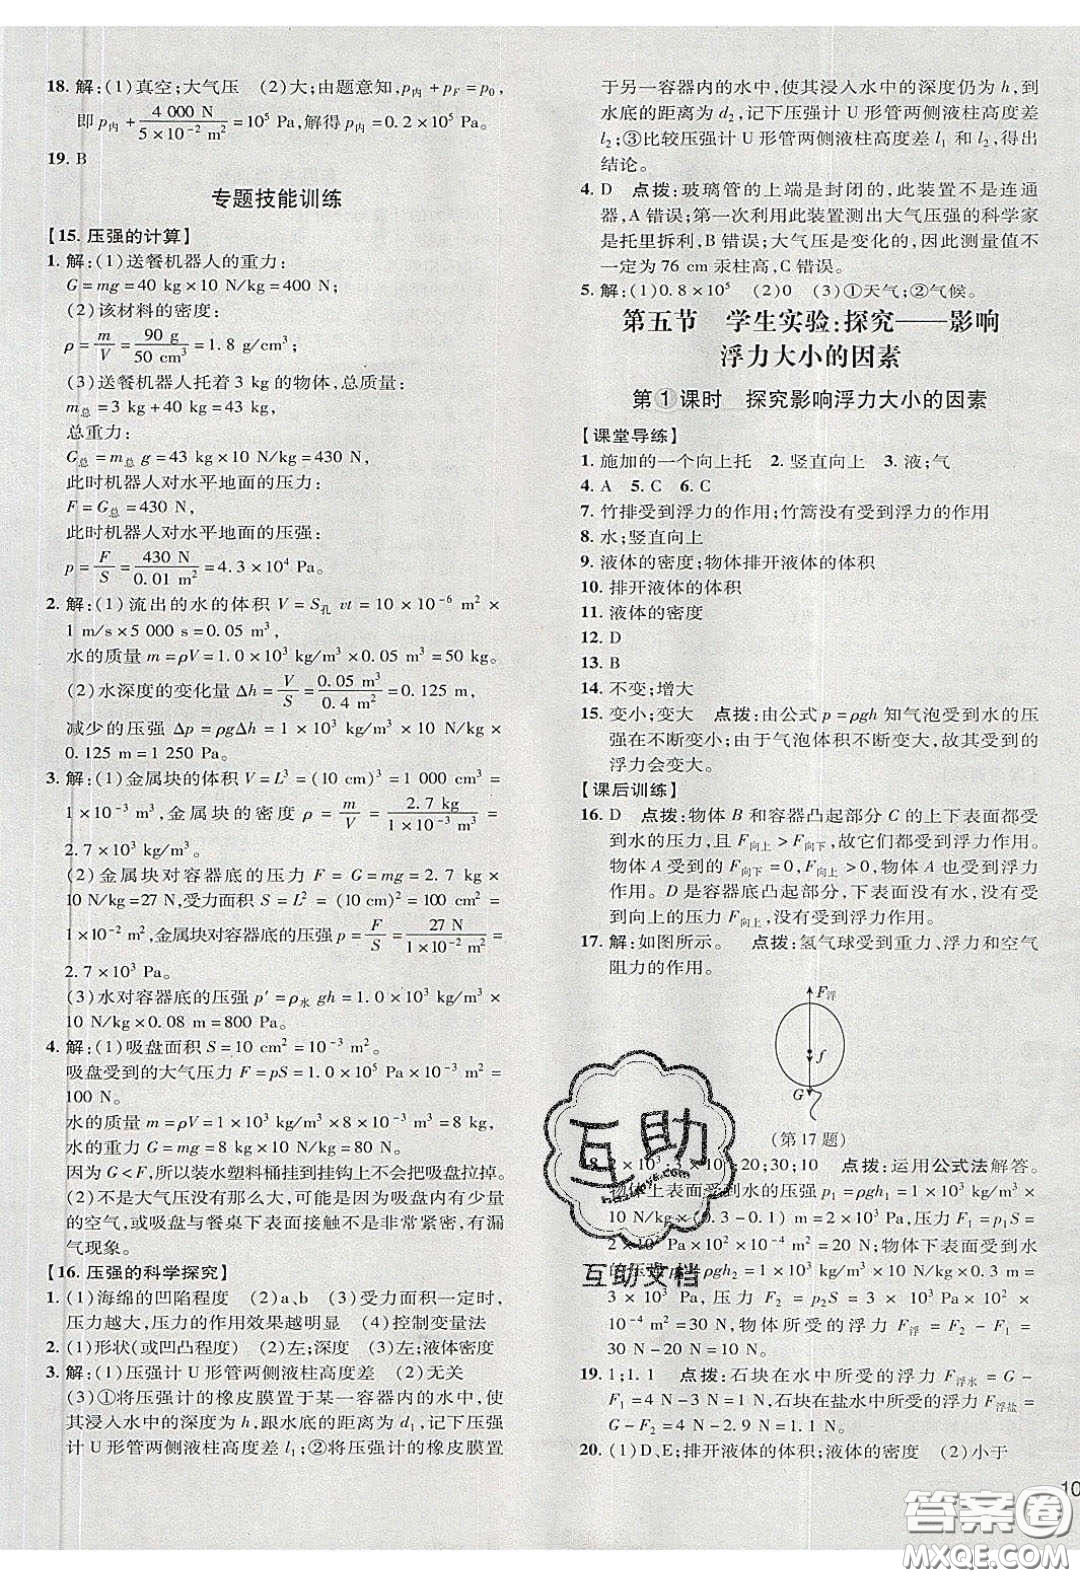 18. 解:(1)真空;大气压 (2)大;由题意知,p内+pF=p0,
即 p内+4 000 N/5×10⁻² m²=10⁵ Pa,解得 p内=0.2×10⁵ Pa。
19. B
专题技能训练
【15. 压强的计算】
1. 解:(1)送餐机器人的重力:
G=mg=40 kg×10 N/kg=400 N;
(2)该材料的密度:
ρ=m/V=90 g/50 cm³=1.8 g/cm³;
(3)送餐机器人托着 3 kg 的物体,总质量:
m总=3 kg+40 kg=43 kg,
总重力:
G总=m总 g=43 kg×10 N/kg=430 N,
此时机器人对水平地面的压力:
F=G总=430 N,
此时机器人对水平地面的压强:
p=F/S=430 N/0.01 m²=4.3×10⁴ Pa。
2. 解:(1)流出的水的体积 V=S孔 vt=10×10⁻⁶ m²×
1 m/s×5 000 s=0.05 m³,
水的质量 m=ρV=1.0×10³ kg/m³×0.05 m³=50 kg。
(2)水深度的变化量 Δh=V/S=0.05 m³/0.4 m²=0.125 m,
减少的压强 Δp=ρgΔh=1×10³ kg/m³×10 N/kg×
0.125 m=1 250 Pa。
3. 解:(1)金属块的体积 V=L³=(10 cm)³=1 000 cm³=
1×10⁻³ m³,金属块的密度 ρ=m/V=2.7 kg/1×10⁻³ m³=
2.7×10³ kg/m³。
(2)金属块对容器底的压力 F=G=mg=2.7 kg×
10 N/kg=27 N,受力面积 S=L²=(10 cm)²=100 cm²=
1×10⁻² m²,金属块对容器底的压强 p=F/S=27 N/1×10⁻² m²=
2.7×10³ Pa。
(3)水对容器底的压强 p′=ρ水 gh=1.0×10³ kg/m³×
10 N/kg×0.08 m=800 Pa。
4. 解:(1)吸盘面积 S=10 cm²=10⁻³ m²。
吸盘受到的大气压力 F=pS=1.0×10⁵ Pa×10⁻³ m²=
100 N。
水的质量 m=ρV=1×10³ kg/m³×8×10⁻³ m³=8 kg。
水的重力 G=mg=8 kg×10 N/kg=80 N。
因为 G<F,所以装水塑料桶挂到挂钩上不会把吸盘拉掉。
(2)不是大气压没有那么大,可能是吸盘内存在少量
的空气,或吸盘与餐桌下表面接触不是非常紧密,有漏
气现象。
【16. 压强的科学探究】
1. (1)海绵的凹陷程度 (2)a、b (3)受力面积一定时,
压力越大,压力的作用效果越明显 (4)控制变量法
2. (1)形状(或凹凸程度) (2)左;深度 (3)左;液体密度
3. 解:(1)压强计 U 形管两侧液柱高度差 (2)无关
(3)①将压强计的橡皮膜置于某一容器内的水中,使
其浸入水中的深度为 h,跟水底的距离为 d1,记下压强
计 U 形管两侧液柱高度差 l1;②将压强计的橡皮膜置
于另一容器内的水中,使其浸入水中的深度仍为 h,到
水底的距离为 d2,记下压强计 U 形管两侧液柱高度差
l2;③比较压强计 U 形管两侧液柱高度差 l1 和 l2,得出
结论。
4. D 点拨:玻璃管的上端是封闭的,此装置不是连通
器,A 错误;第一次利用此装置测出大气压强的科学家
是托里拆利,B 错误;大气压是变化的,因此测量值不
一定为 76 cm 汞柱高,C 错误。
5. 解:(1)0.8×10⁵ (2)0 (3)①天气;②气候。
第五节 学生实验:探究——影响
浮力大小的因素
第①课时 探究影响浮力大小的因素
【课堂导练】
1. 施加的一个向上托 2. 竖直向上 3. 液;气
4. A 5. C 6. C
7. 竹排受到浮力的作用;竹篙没有受到浮力的作用
8. 水;竖直向上
9. 液体的密度;物体排开液体的体积
10. 排开液体的体积
11. 液体的密度
12. D
13. B
14. 不变;增大
15. 变小;变大 点拨:由公式 p=ρgh 知气泡受到水的压
强在不断变小;由于气泡体积不断变大,故其受到的
浮力会变大。
【课后训练】
16. D 点拨:物体 B 和容器凸起部分 C 的上下表面都受
到水的压力,且 F向上>F向下,故它们都受到浮力作用。
物体 A 受到的 F向下=0,F向上>0,物体 A 受到浮力
作用。D 是容器底凸起部分,下表面没有水,没有受
到向上的压力 F向上,故没有受到浮力作用。
17. 解:如图所示。 点拨:氢气球受到重力、浮力和空气
阻力的作用。
F浮
f
G
(第 17 题)
18. 2×10³;3×10³;20;30;10 点拨:运用公式法解答。
物体上表面受到水的压强 p1=ρgh1=1×10³ kg/m³×
10 N/kg×(0.3-0.1) m=2×10³ Pa,压力 F1=p1S=
×10⁻² m²=20 N;物体下表面受到水
的压强 p2=ρgh2=1×10³ kg/m³×10 N/kg×
=3×10³ Pa,压力 F2=p2S=3×10³ Pa×
10⁻² m²=30 N;物体所受的浮力 F浮=F2-F1=
30 N-20 N=10 N。
19. 1;1.1 点拨:石块在水中所受的浮力 F浮水=G-
F1=4 N-3 N=1 N,石块在盐水中所受的浮力 F浮盐=
G-F2=4 N-2.9 N=1.1 N。
20. (1)D、E;排开液体的体积;液体的密度 (2)小于
互助
互助文档
答案圈
MXQE.COM
10